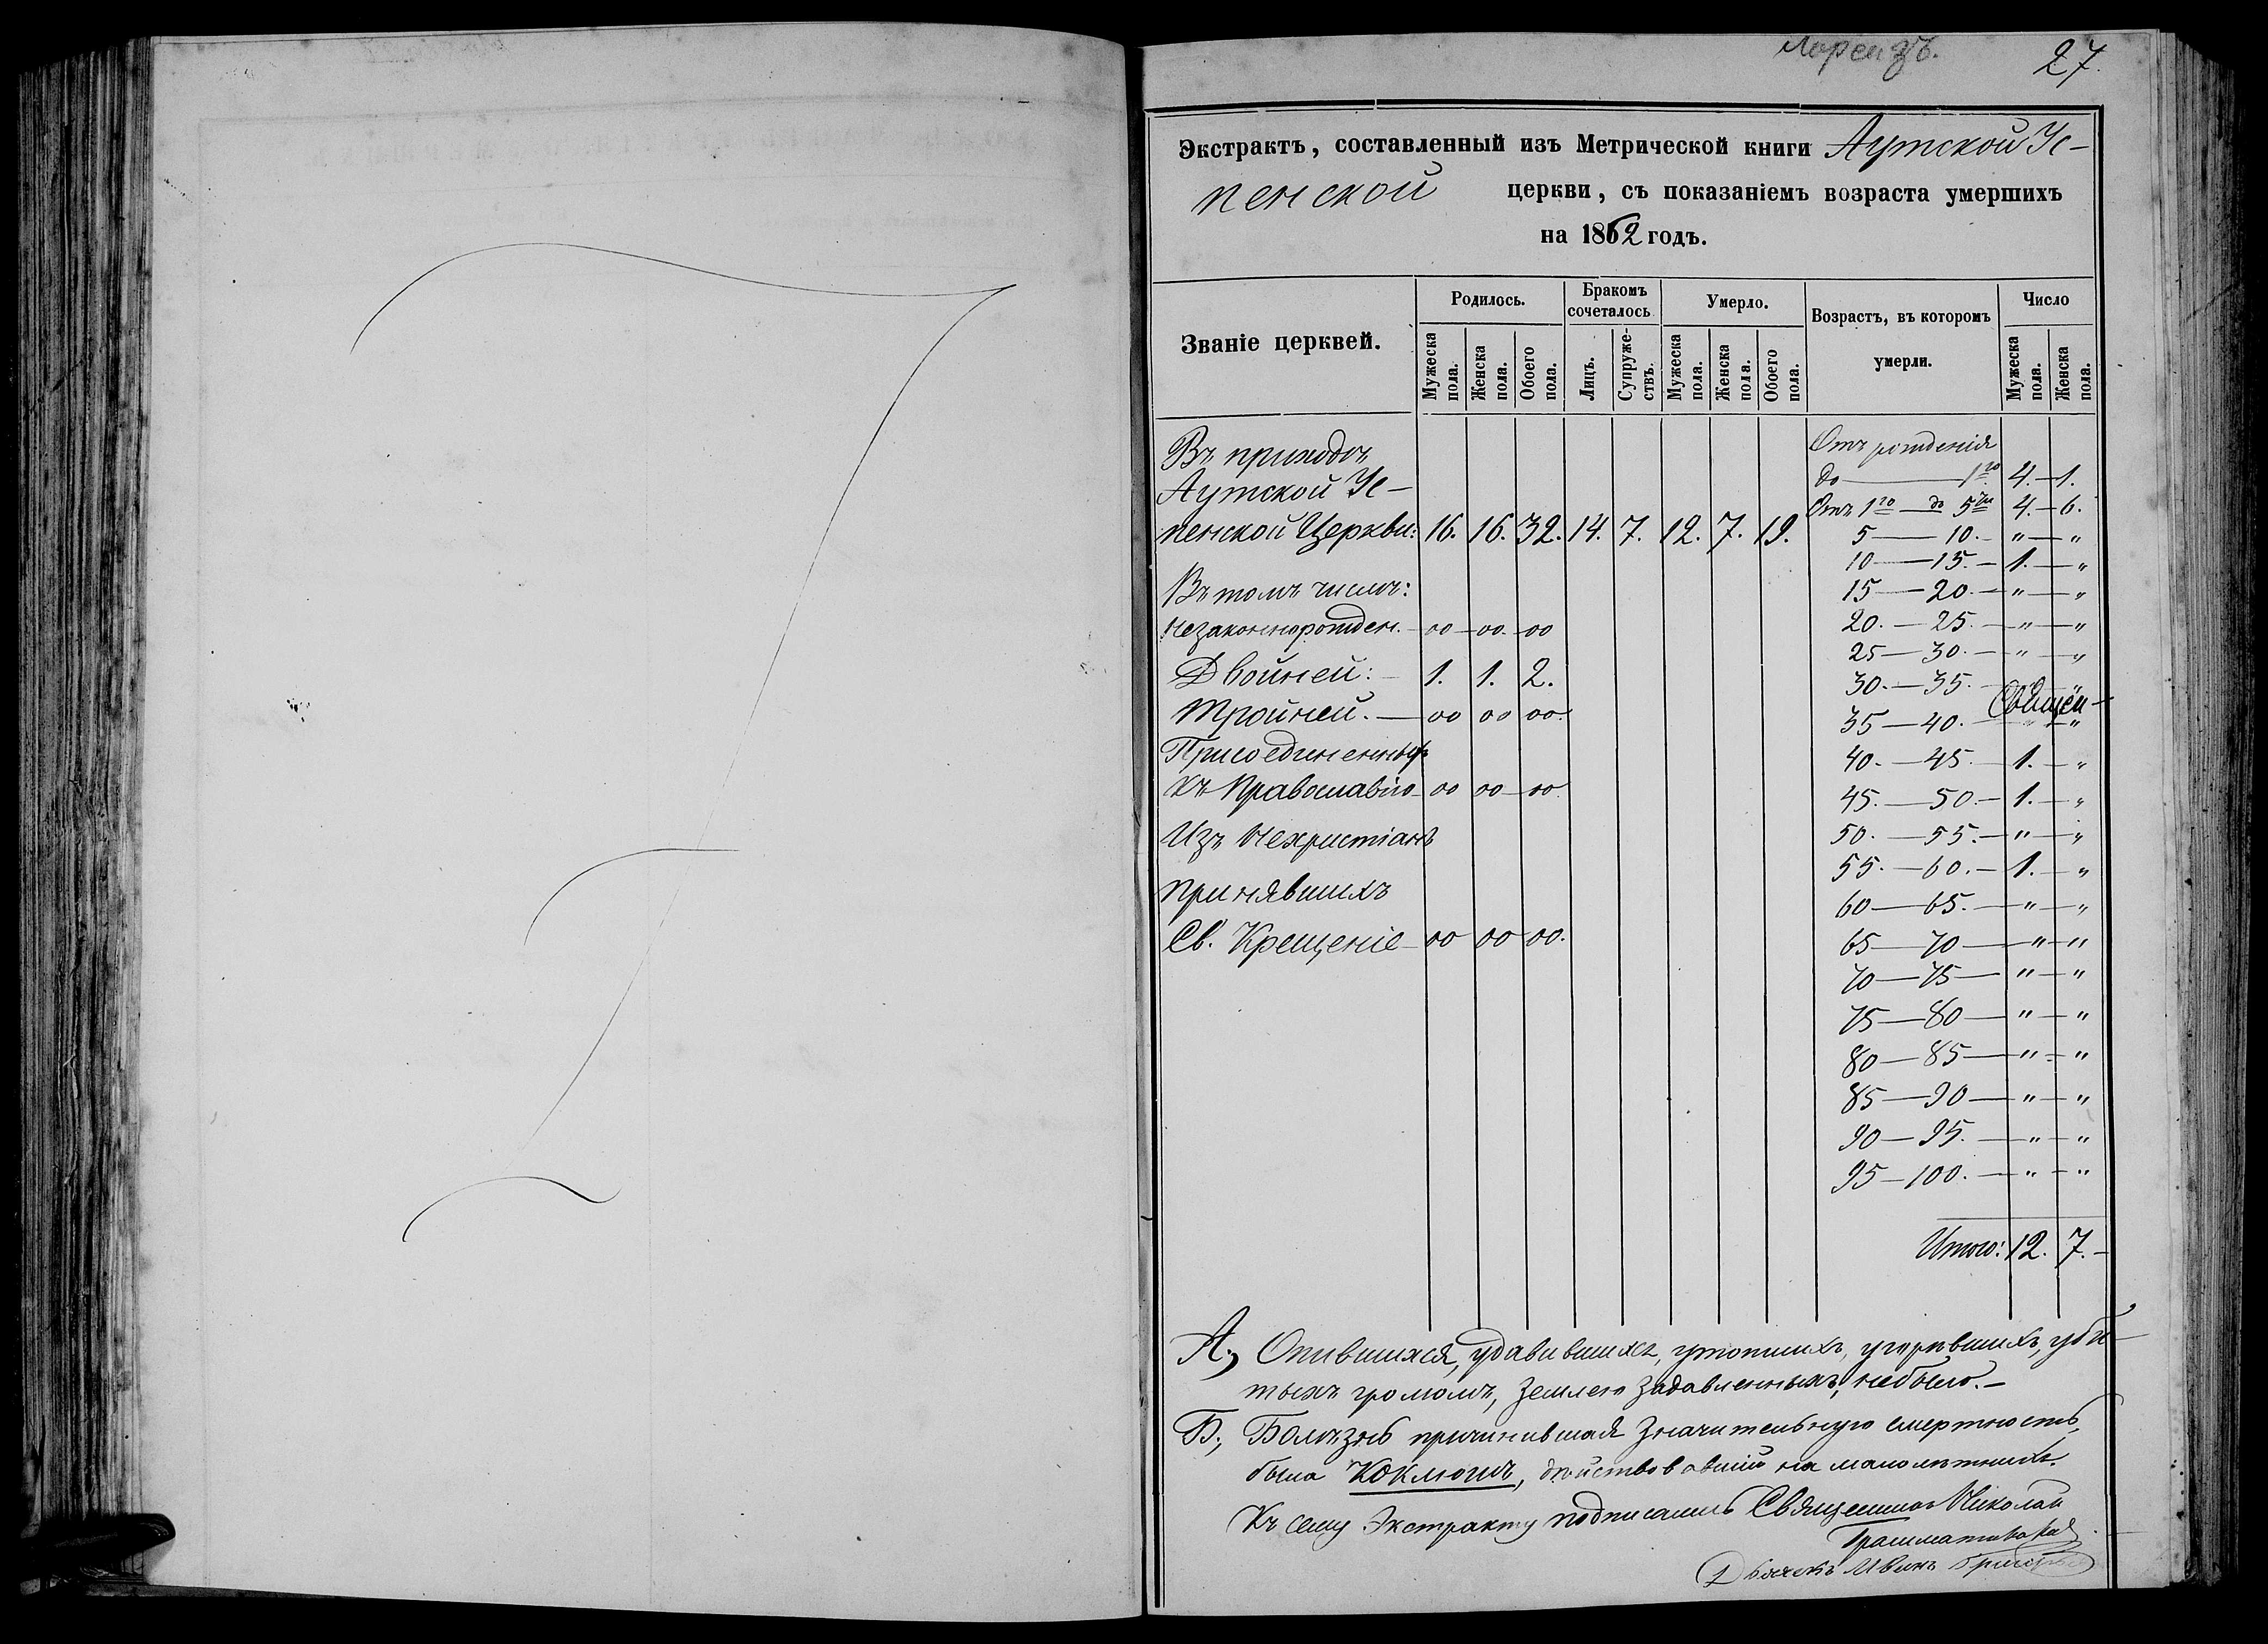 27.
Экстрактъ, составленный изъ Метрической книги Аутской Ус-
пенской церкви, съ показаніемъ возраста умершихъ
на 1862 годъ.
Званіе церквей. Родилось. Бракомъ сочеталось Умерло. Возрастъ, въ которомъ умерли. Число
Мужеска пола. Женска пола. Обоего пола. Лицъ. Супруже-ствъ. Мужеска пола. Женска пола. Обоего пола. Мужеска пола. Женска пола.
Въ приходѣ
Аутской Ус-
пенской Церкви: 16. 16. 32. 14. 7. 12. 7. 19.
Въ томъ числѣ:
незаконнорожден. – оо – оо. – оо
Двойней: – 1. 1. 2.
Тройней. – оо оо оо.
Присоединенныхъ
къ Православію оо оо оо.
Изъ Нехристіанъ
принявшихъ
Св. Крещеніе оо оо оо.
Отъ рожденія
до — 1го 4. – 1.
Отъ 1го – до 5ти 4. – 6.
5 — 10. – " – "
10 — 15. – 1. – "
15 — 20. – " – "
20. — 25. – " – "
25 — 30. – " – "
30. — 35. – " – "
Священ-
35 — 40. – " – "
40. — 45. – 1. – "
45. — 50. – 1. – "
50. — 55. – " – "
55. — 60. – 1. – "
60 — 65. – " – "
65 — 70 – " – "
70 — 75 – " – "
75 — 80 – " – "
80 — 85 – " – "
85 — 90 – " – "
90 — 95. – " – "
95 — 100. – " – "
Итого: 12. 7. –
А., Опившихся, удавившихся, утопшихъ, угорѣвшихъ, уби-
тыхъ громомъ, землею задавленныхъ, небыло. –
Б., Болѣзнь причинившая значительную смертность,
была Коклюшъ, дѣйствовавшій на малолѣтнихъ.
Къ сему Экстракту подписались Священникъ Николай
Дьячекъ Иванъ